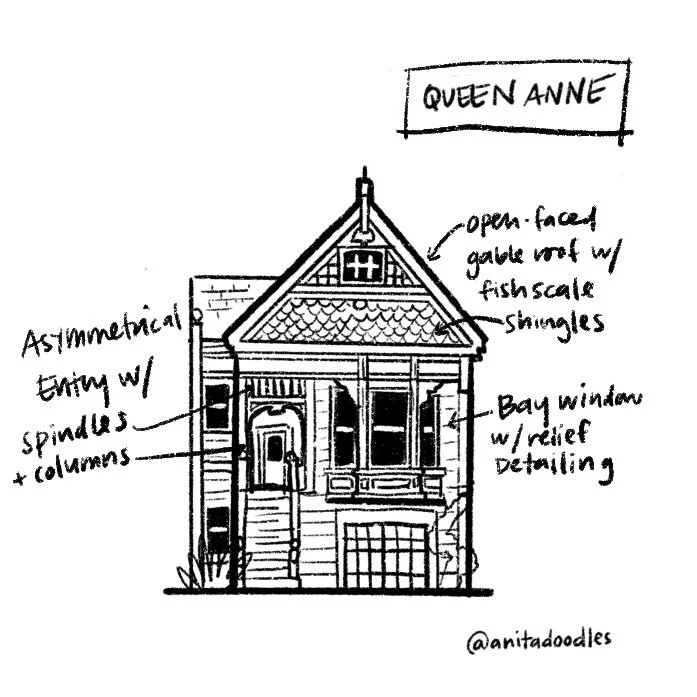 QUEEN ANNE
open-faced
gable roof w/
fishscale
shingles
Asymmetrical
Entry w/
spindles
+ columns
Bay window
w/relief
Detailing
@anitadoodles